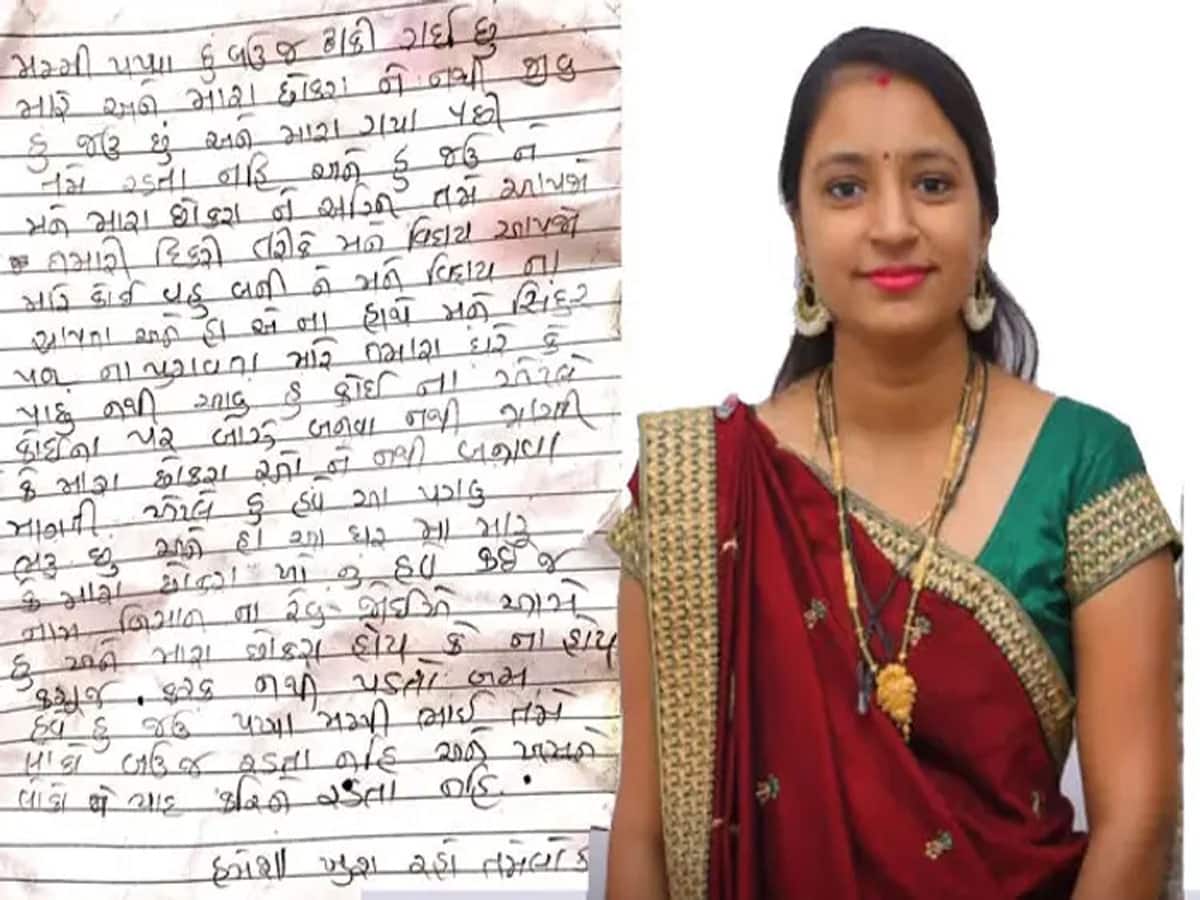 મમ્મી પપ્પા હું બઉજ થાકી ગઈ છું
મારે અને મારા છોકરા ને નથી જીવવુ
હું જઉ છું અને મારા ગયા પછી
તમે રડતા નહિ અને હું જઉ ને
મને મારા છોકરા ને અગ્નિ તમે આપજો
તમારી દિકરી તરીકે મને વિદાય આપજો
મારે કોઈ વહુ બની ને મને વિદાય ના
આપતા અને હા એ ના હાથે મને સિંદુર
પણ ના પુરાવતા મારે તમારા ઘરે કે
પાછું નથી આવવુ હું કોઈ ના એટલે
કોઈના પર બોજ બનવા નથી માગતી
કે મારા છોકરા ને નથી બનાવા
માગતી એટલે હું હવે આ પગલુ
ભરુ છું અને હા આ ઘર મા મારુ
કે મારા છોકરા નું હવે કઈ જ
નામ નિશાન ના રેવુ જોઈએ આમે
હું અને મારા છોકરા હોય કે ના હોય
કશુજ ફરક નથી પડતો બસ
હવે હું જઉ પપ્પા મમ્મી ભાઈ તમે
લોકો બઉજ રડતા નહિ અને અમને
લોકો ને યાદ કરિને રડતા નહિ.
હમેશા ખુશ રહો તમેલોકો